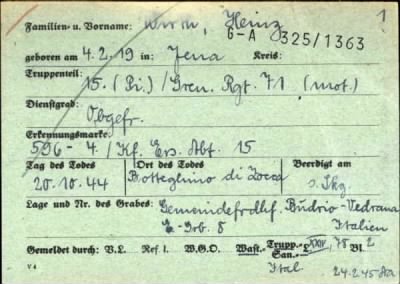 1
Familien- u. Vorname: Wirth, Heinz
G-A 325/1363
geboren am 4.2.19 in: Jena Kreis:
Truppenteil: 15. (Pi.) / Gren. Rgt. 71 (mot.)
Dienstgrad: Obgefr.
Erkennungsmarke: 596 - 4 / Kf. Ers. Abt. 15
Tag des Todes Ort des Todes Beerdigt am
20.10.44 Botteghino di Zocca
Lage und Nr. des Grabes: Gemeindefrdhf. Budrio-Vedrana
E-Grb. 8 Italien
Gemeldet durch: V.L. Ref I. W.G.O. Wast.-Trupp.-L. XXIV, 78 Bl. 2
San.-
V 4 Ital 24.2.45